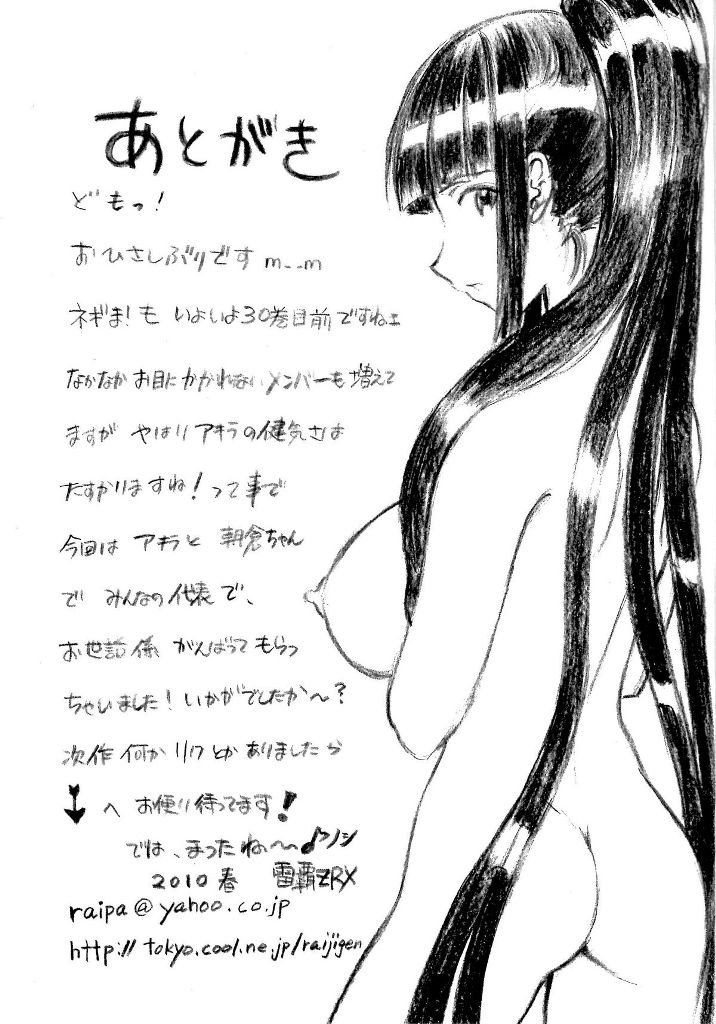 あとがき
どもっ!
おひさしぶりです m--m
ネギま!も いよいよ30巻目前ですねェ
なかなかお目にかかれないメンバーも増えて
ますが やはり アキラの健気さは
たすかりますね!って事で
今回は アキラと 朝倉ちゃん
で みんなの代表で、
お世話係 がんばって もらっ
ちゃいました! いかがでしたか〜?
次作 何か リク とか ありましたら
↓へ お便り待ってます!
では、まったね〜♪ノシ
2010 春 雷覇ZRX
raipa@yahoo.co.jp
http://tokyo.cool.ne.jp/raijigen